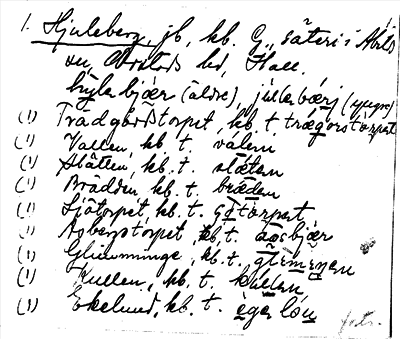 1. Hjuleberg, jb, kb. G., säteri i Abilds
sn, Årstads hd, Hall.
hɥlabjær (äldre), júllabærj (yngre)
(1) Trädgårdstorpet, kb. t. trægorstórpet
(1) Vallen, kb. t. válen
(1) Slätten, kb. t. slǽten
(1) Brädden, kb. t. brǽden
(1) Sjötorpet, kb. t.
(1) Asbergstorpet, kb. t. åsbjær
(1) Glimminge, kb. t.
(1) Kullen, kb. t. kullen
(1) Ekelund, kb. t.